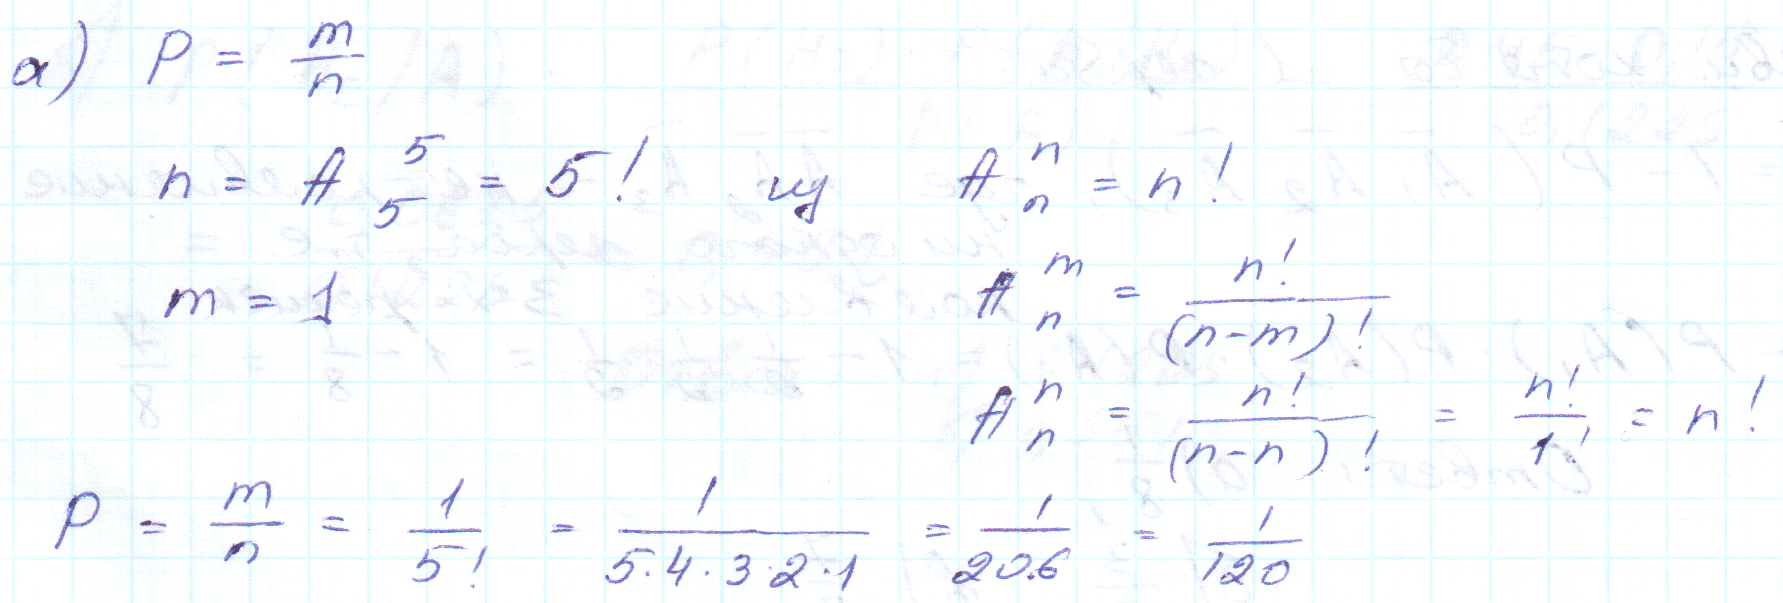 а) P = m/n
n = A_5^5 = 5! из A_n^n = n!
m = 1 A_n^m = n!/(n-m)!
A_n^n = n!/(n-n)! = n!/1! = n!
P = m/n = 1/5! = 1/(5·4·3·2·1) = 1/20.6 = 1/120